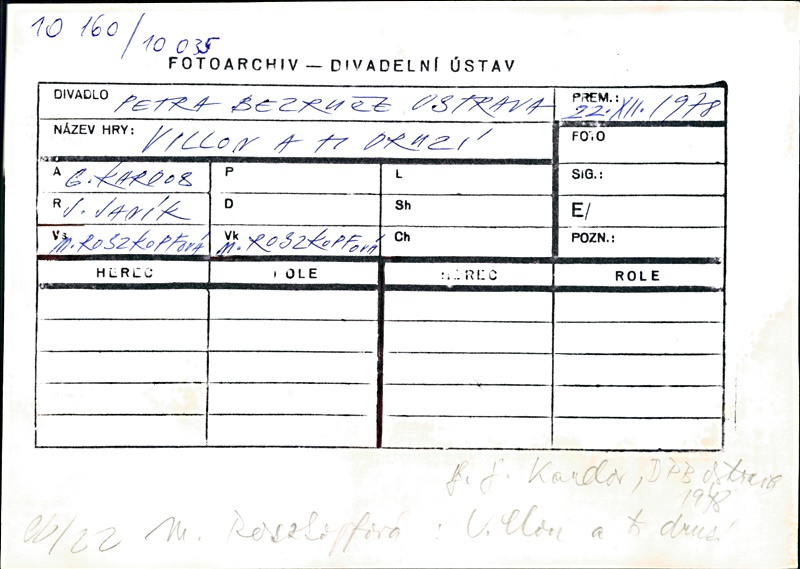 10 160/10 035
FOTOARCHIV — DIVADELNÍ ÚSTAV
DIVADLO PETRA BEZRUČE OSTRAVA PREM.: 22. XII. 1978
NÁZEV HRY: VILLON A TI DRUZÍ FOTO
A G. KARDOS P L SIG.:
R J. JANÍK D Sh E/
Vs M. ROSZKOPFOVÁ Vk M. ROSZKOPFOVÁ Ch POZN.:
HEREC ROLE HEREC ROLE
Kardos, DPB Ostrava
1978
M. Roszkopfová : Villon a ti druzí